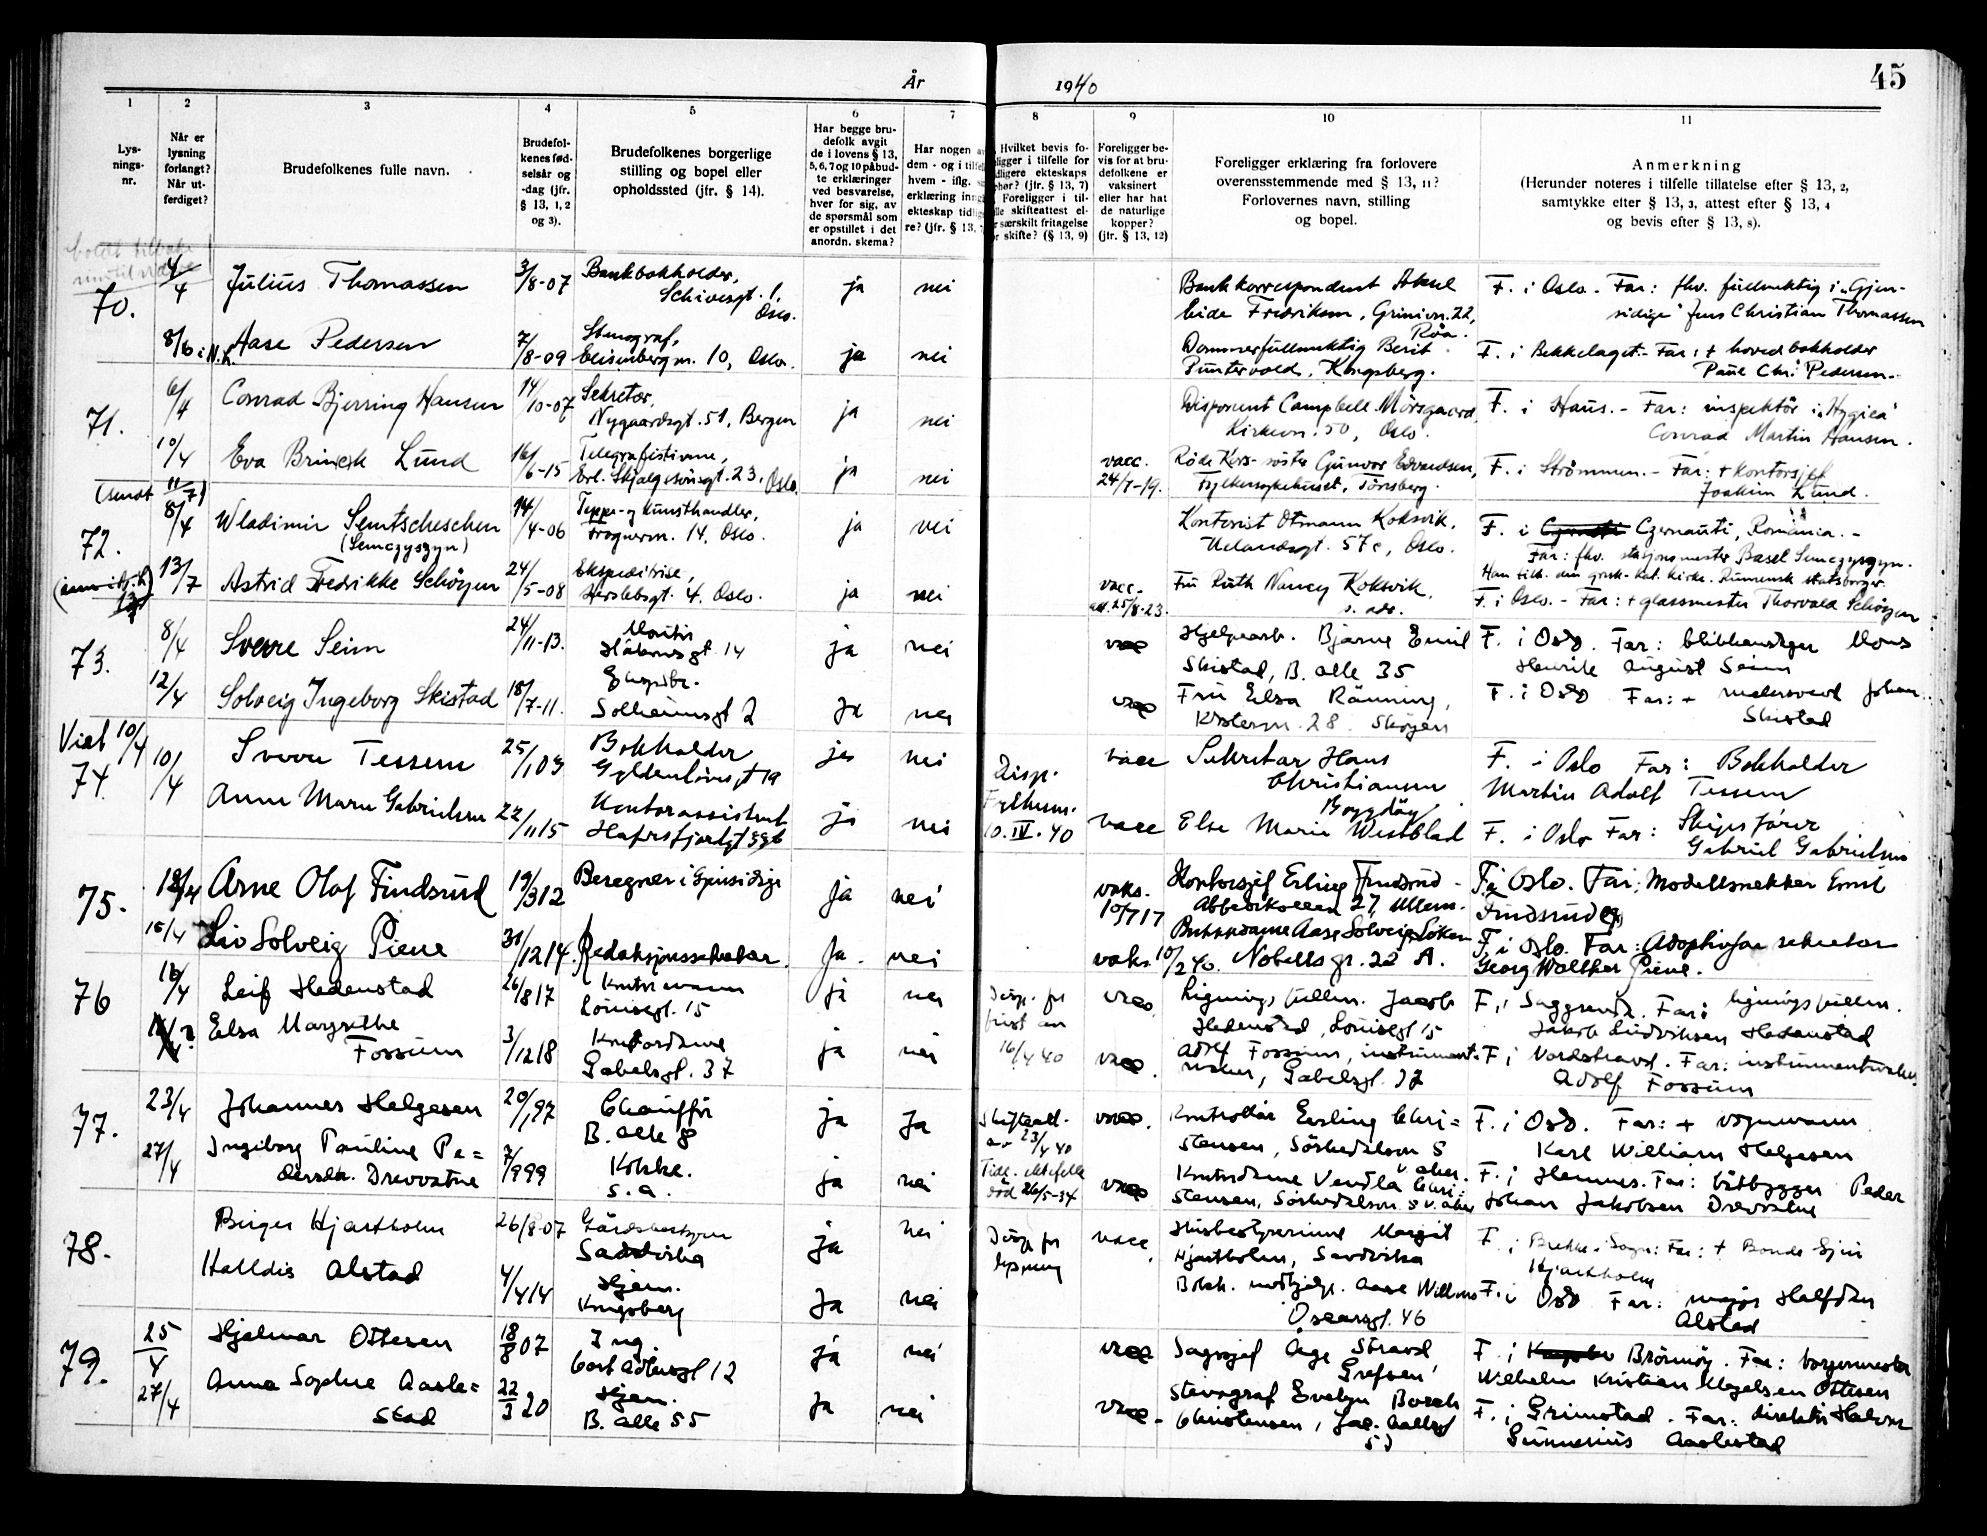 År 1940
45
1 2 3 4 5 6 7 8 9 10 11
Lys-
nings-
nr.
Når er
lysning
forlangt?
Når ut-
ferdiget?
Brudefolkenes fulle navn.
Brudefol-
kenes fød-
selsår og
-dag (jfr.
§ 13, 1, 2
og 3).
Brudefolkenes borgerlige
stilling og bopel eller
opholdssted (jfr. § 14).
Har begge bru-
defolk avgit
de i lovens § 13,
5, 6, 7 og 10 påbud-
te erklæringer
ved besvarelse,
hver for sig, av
de spørsmål som
er opstillet i det
anordn. skema?
Har nogen
dem - og i
hvem - iflg.
erklæring
ekteskap
re? (jfr. § 13,
Hvilket bevis fo-
ligger i tilfelle for
ekteskaps
(jfr. § 13, 7)
Foreligger i til-
skifteattest el-
særskilt fritagelse
skifte? (§ 13, 9)
Foreligger be-
vis for at bru-
defolkene er
vaksinert
eller har hat
de naturlige
kopper?
(jfr. § 13, 12)
Foreligger erklæring fra forlovere
overensstemmende med § 13, 11?
Forlovernes navn, stilling
og bopel.
Anmerkning
(Herunder noteres i tilfelle tillatelse efter § 13, 2,
samtykke efter § 13, 3, attest efter § 13, 4
og bevis efter § 13, 8).
70.
4/4 Julius Thomassen 3/8-07 Bankbokholder, ja nei Bankkorrespondent Aksel F. i Oslo. - Far: fhv. fullmektig i "Gjen-
Schivesgt. 1, Oslo. Fredriksen, Griniv. 22, Røa. sidige" Jens Christian Thomassen
8/6 i N.k. Aase Pedersen 7/8-09 Stenograf, ja nei Dommerfullmektig Berit F. i Bekkelaget. - Far: + hovedbokholder
10, Oslo. Puntervold, Kongsberg. Paul Chr. Pedersen.
71.
6/4 Conrad Bjerring Hansen 14/10-07 Sekretær, ja nei Disponent Campbell Mørsgaard, F. i Haus. - Far: inspektør i "Hygiea"
Nygaardsgt. 51, Bergen Kirkevn. 50, Oslo. Conrad Martin Hansen.
10/4 Eva Lund 16/6-15 Telegrafistinne, ja nei vacc. Røde Kors-søster Gunvor Edvardsen, F. i Strømmen. - Far: + kontorsjef
Erl. Skjalgssønsgt. 23, Oslo. 24/7-19. Fylkessykehuset, Tønsberg. Joakim Lund.
72.
8/4 Wladimir Semtscheschen 14/4-06 Teppe- og kunsthandler, ja nei Kontorist Otmann Koksvik, F. i Czernauti, Romania. -
(Semczyszyn) Frognervn. 14, Oslo. Uelandsgt. 57c, Oslo. Far: fhv. stasjonsmester Basel Semczyszyn.
Han tilh. den gresk-kat. kirke. Rumensk statsborger.
13/7 Astrid Fredrikke Schøyen 24/5-08 Ekspeditrise, ja nei vacc. Fru Ruth Nancy Koksvik, F. i Oslo. - Far: + glassmester Thorvald Schøyen
Herslebsgt. 4, Oslo. 25/8-23. s. adr.
73.
8/4 Sverre Seim 24/11-13. Montør ja nei vacc Hjelpearb. Bjarne Emil F. i Oslo. Far: blikkenslager Mons
Håkonsgt. 14 Skistad, B. alle 35 Henrik August Seim
12/4 Solveig Ingeborg Skistad 18/7-11. Ekspdtr. ja nei vacc Fru Elsa Rånning, F. i Oslo Far: + Johan
Solheimsgt 2 28 Skøyen Skistad
Viet 10/4
74.
10/4 Sverre Tessem 25/1 09 Bokholder ja nei Disp. vacc Sekretær Hans F. i Oslo Far: Bokholder
Gyldenløvesgt 19 Christiansen Bygdøy Martin Adolf Tessem
Anne Marie Gabrielsen 22/11 15 Kontorassistent ja nei 10.IV.40 vacc Else Marie Westblad F. i Oslo Far: Skipsfører
Hafrsfjordgt Gabriel Gabrielsen
75.
12/4 Arne Olaf Findsrud 19/3 12 Beregner i Gjensidige ja nei vaks. Kontorsjef Erling Findsrud - F. i Oslo. Far: Modellsnekker Emil
10/7 17 Abbedikollen 27, Ullern. Findsrud
15/4 Liv Solveig Piene 31/12 14 Redaksjonssekretær. ja. nei vaks. 10/2 40. Aase Solveig F. i Oslo. Far: Adoptivfar sekretær
Nobels gt. 22 A. Georg Walther Piene.
76
16/4 Leif Hedenstad 26/8 17 Kontormann ja nei Disp. for vacc Ligningsfullm. Jacob F. i Saggrenda. Far: ligningsfullm.
Louisesgt. 15 frist Hedenstad, Louisesgt 15 Jakob Ludviksen Hedenstad
Elsa Margrethe 3/12 18 Kontordame ja nei 16/4 40 vacc. Adolf Fossum, instrument- F. i Nordstrand. Far: instrumentmaker
Fossum Gabelsgt. 37 maker, Gabelsgt. 37 Adolf Fossum
77.
23/4 Johannes Helgesen 20/1 97 Chauffør ja ja Skifteatt. vacc. Kontrollør Erling Chri= F. i Oslo. Far: + vognmann
B. alle 8 av 23/4 40 stensen, Sørkedalsvn 8 Karl William Helgesen
27/4 Ingeborg Pauline Pe= 7/9 99 Kokke. ja nei Tidl. ektefelle vacc Kontordame Vendla Chri= F. i Hemnes. Far: båtbygger Peder
dersen Drevvatne s.a. død 26/5-34 stensen, Sørkedalsvn 8 Johan Jakobsen Drevvatne
78.
Birger Hjartholm 26/8-07 Gårdsbestyrer ja nei Disp. for vacc Husbestyrerinne Margit F. i Brekke i Sogn: Far: + Bonde
Sandvika lysning Hjartholm, Sandvika Hjartholm
Halldis Alstad 4/4 14 Hjem. ja nei Aase F. i Oslo Far: major Halfdan
Kongsberg Oscarsgt. 46 Alstad
79.
25/4 Hjalmar Ottesen 18/8 07 Ing. ja nei vacc Sagsjef Åge Strand F. i Brønnøy. Far: borgermester
Cort Adlersgt 12 Grefsen Wilhelm Kristian Ottesen
27/4 Anna Sophie Aasle= 22/3 20 Hjem. ja nei vacc. Stenograf Evelyn Borch F. i Grimstad. Far: direktør Halvor
stad B. alle 55 Christensen, Jac. Aallsgt 53 Gunnerius Aaslestad